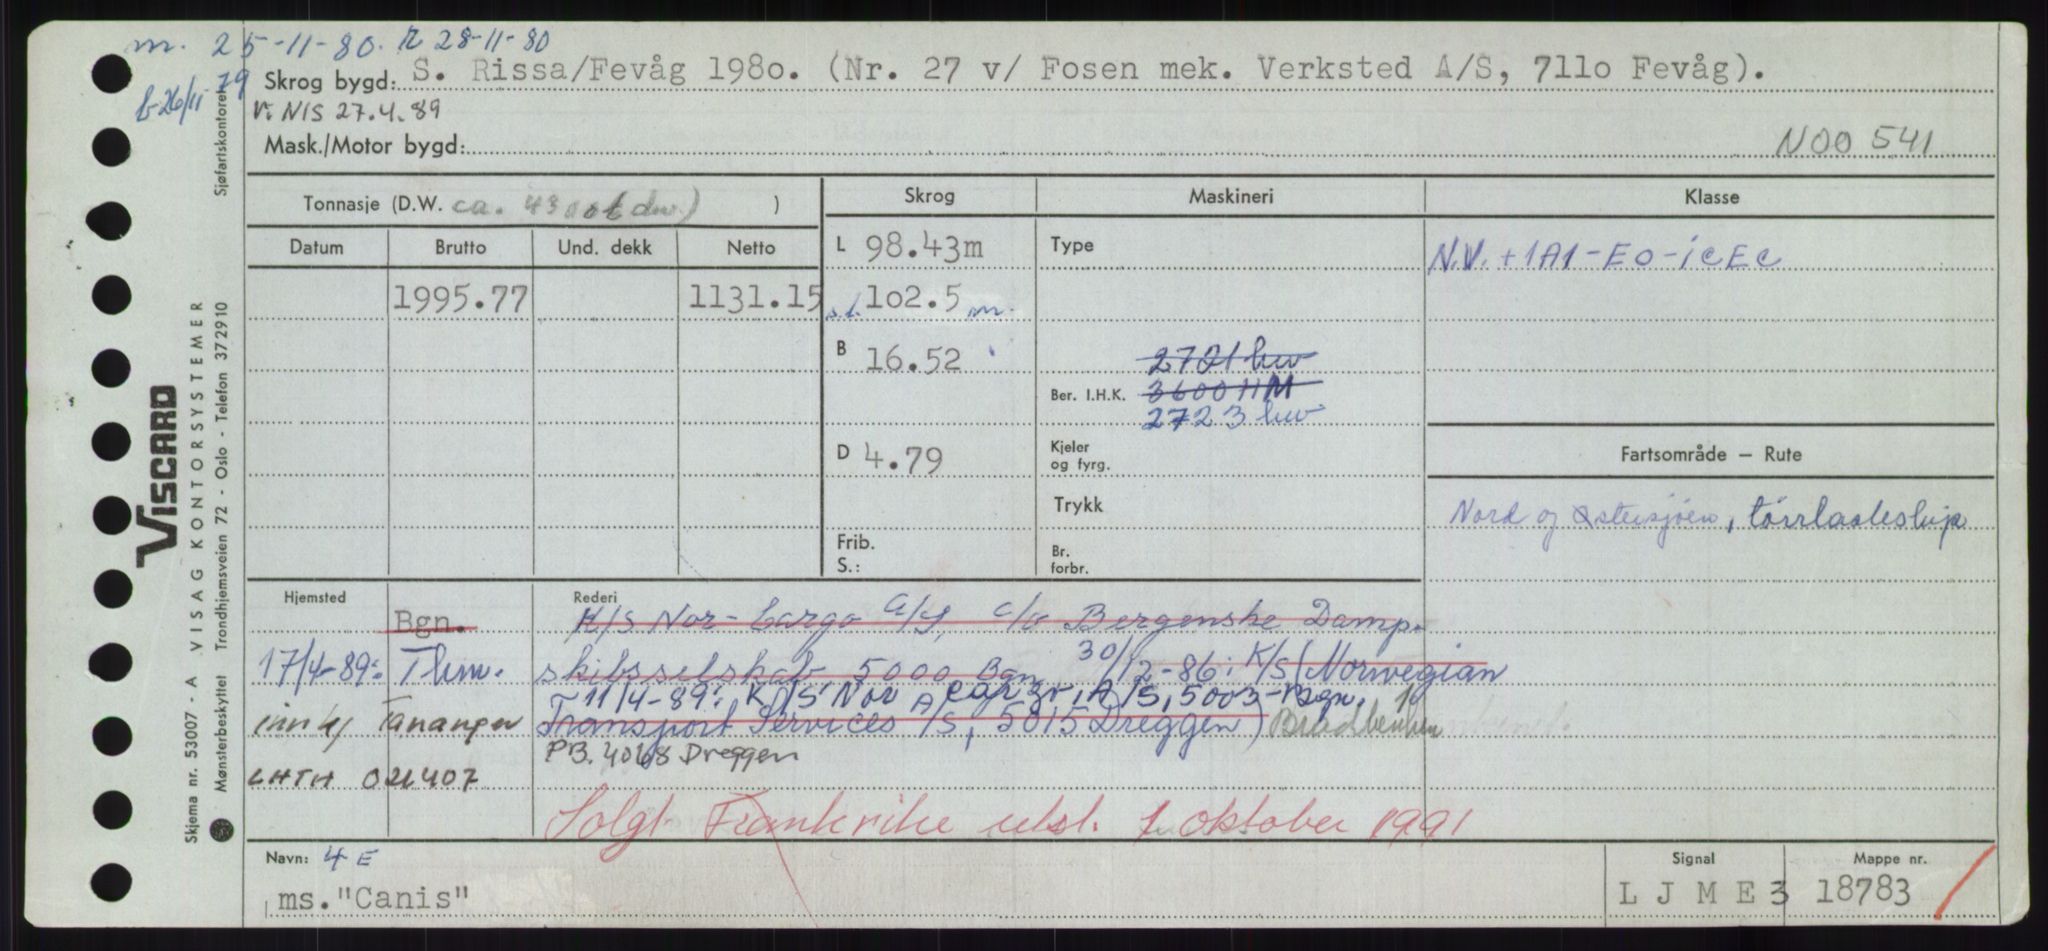 m. 25-11-80. R 28-11-80
b-26/11 79
Skrog bygd: S. Rissa/Fevåg 198o. (Nr. 27 v/ Fosen mek. Verksted A/S, 711o Fevåg).
V. NIS 27.4.89
Mask./Motor bygd:
NOO 541
Tonnasje (D.W. ca. 4300 t dw.) )
Skrog Maskineri Klasse
Datum Brutto Und. dekk Netto
L 98.43m Type N.V. +1A1-EO-icEc
1995.77 1131.15 s.l. 1o2.5 m.
B 16.52 2721 kw
Ber. I.H.K. 3600 HM
2723 kw
D 4.79 Kjeler og fyrg. Fartsområde — Rute
Trykk
Nord og Østersjøen, törrlasteskip
Frib.
S.:
Br. forbr.
Hjemsted Rederi
Bgn. K/S Nor-Cargo A/S, c/o Bergenske Damp-
17/4-89: Thm. skibsselskab 5000 Bgn 30/12-86: K/S (Norwegian
11/4-89: K/S Nor Cargo, A/S, 5003-Bgn.
Tananger Transport Services A/S, 5015 Dreggen)
P.B. 4068 Dreggen
LHTH 021407
Solgt Frankrike utsl. 1 oktober 1991
Navn: 4 E
ms."Canis"
Signal Mappe nr.
L J M E 3 18783
Skjema nr. 53007 - A VISAG KONTORSYSTEMER
VISCARD
Mønsterbeskyttet Trondhjemsveien 72 - Oslo - Telefon 372910
Sjøfartskontoret